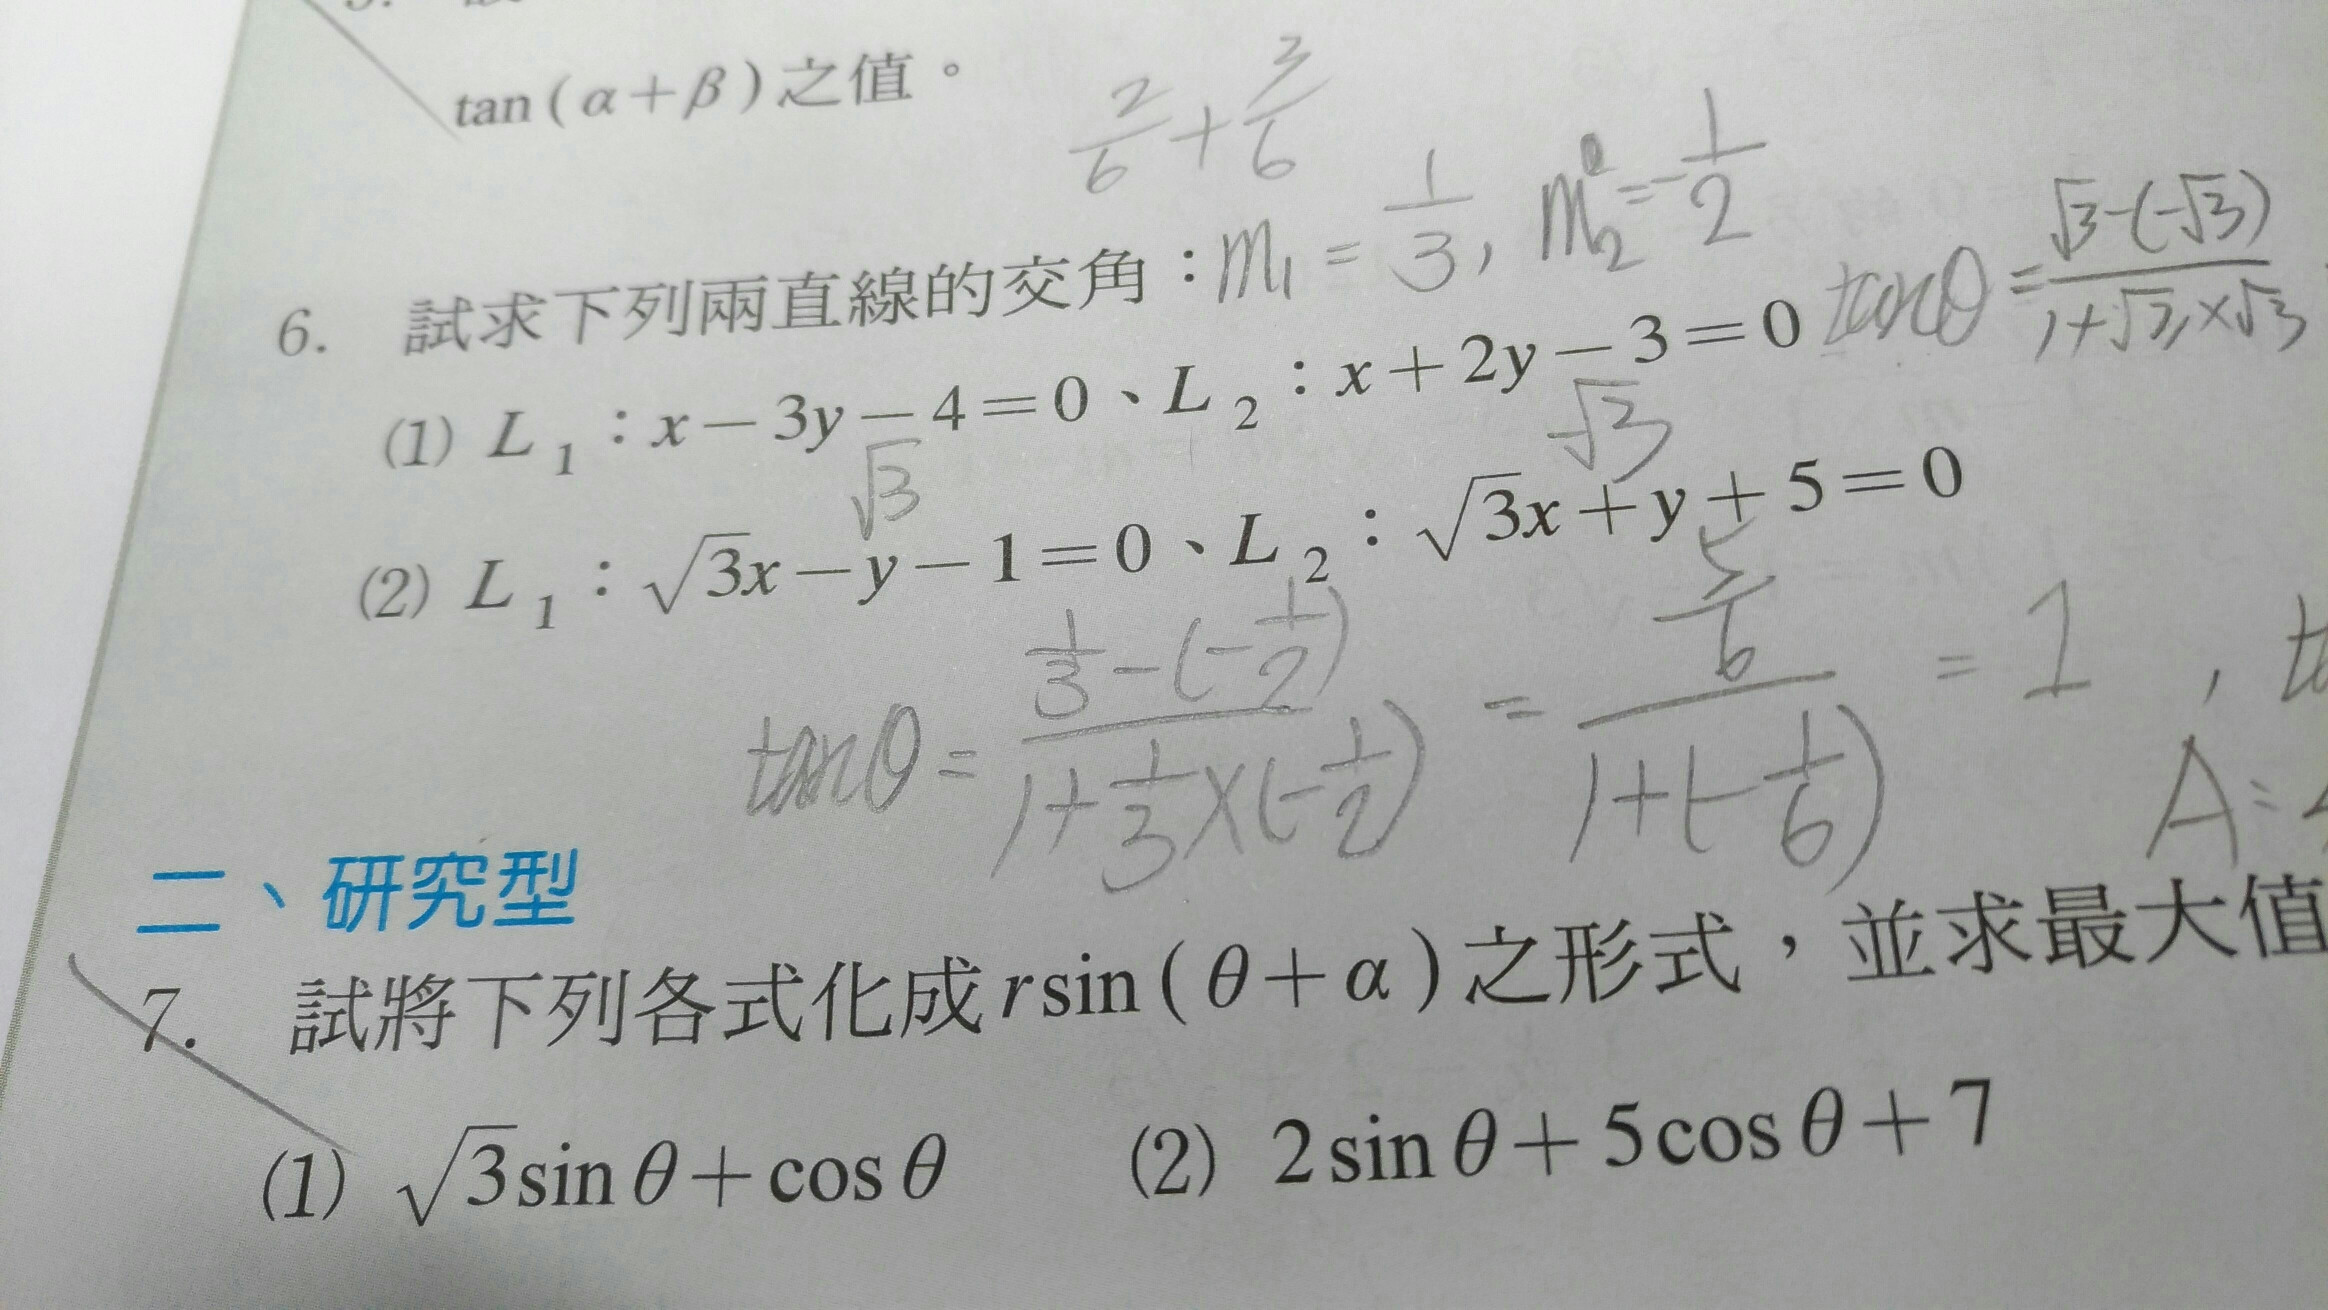 tan(α+β)之值。
2/6 + 3/6
6. 試求下列兩直線的交角：m₁ = 1/3, m₂ = -1/2
(1) L₁：x－3y－4＝0、L₂：x＋2y－3＝0 tanθ = (√3-(-√3))/(1+√3×√3)
√3 -√3
(2) L₁：√3x－y－1＝0、L₂：√3x＋y＋5＝0
tanθ = (1/3-(-1/2))/(1+1/3×(-1/2)) = (5/6)/(1+(-1/6)) = 1 ,
A =
二、研究型
7. 試將下列各式化成 r sin(θ+α)之形式，並求最大值
(1) √3sinθ＋cosθ (2) 2sinθ＋5cosθ＋7